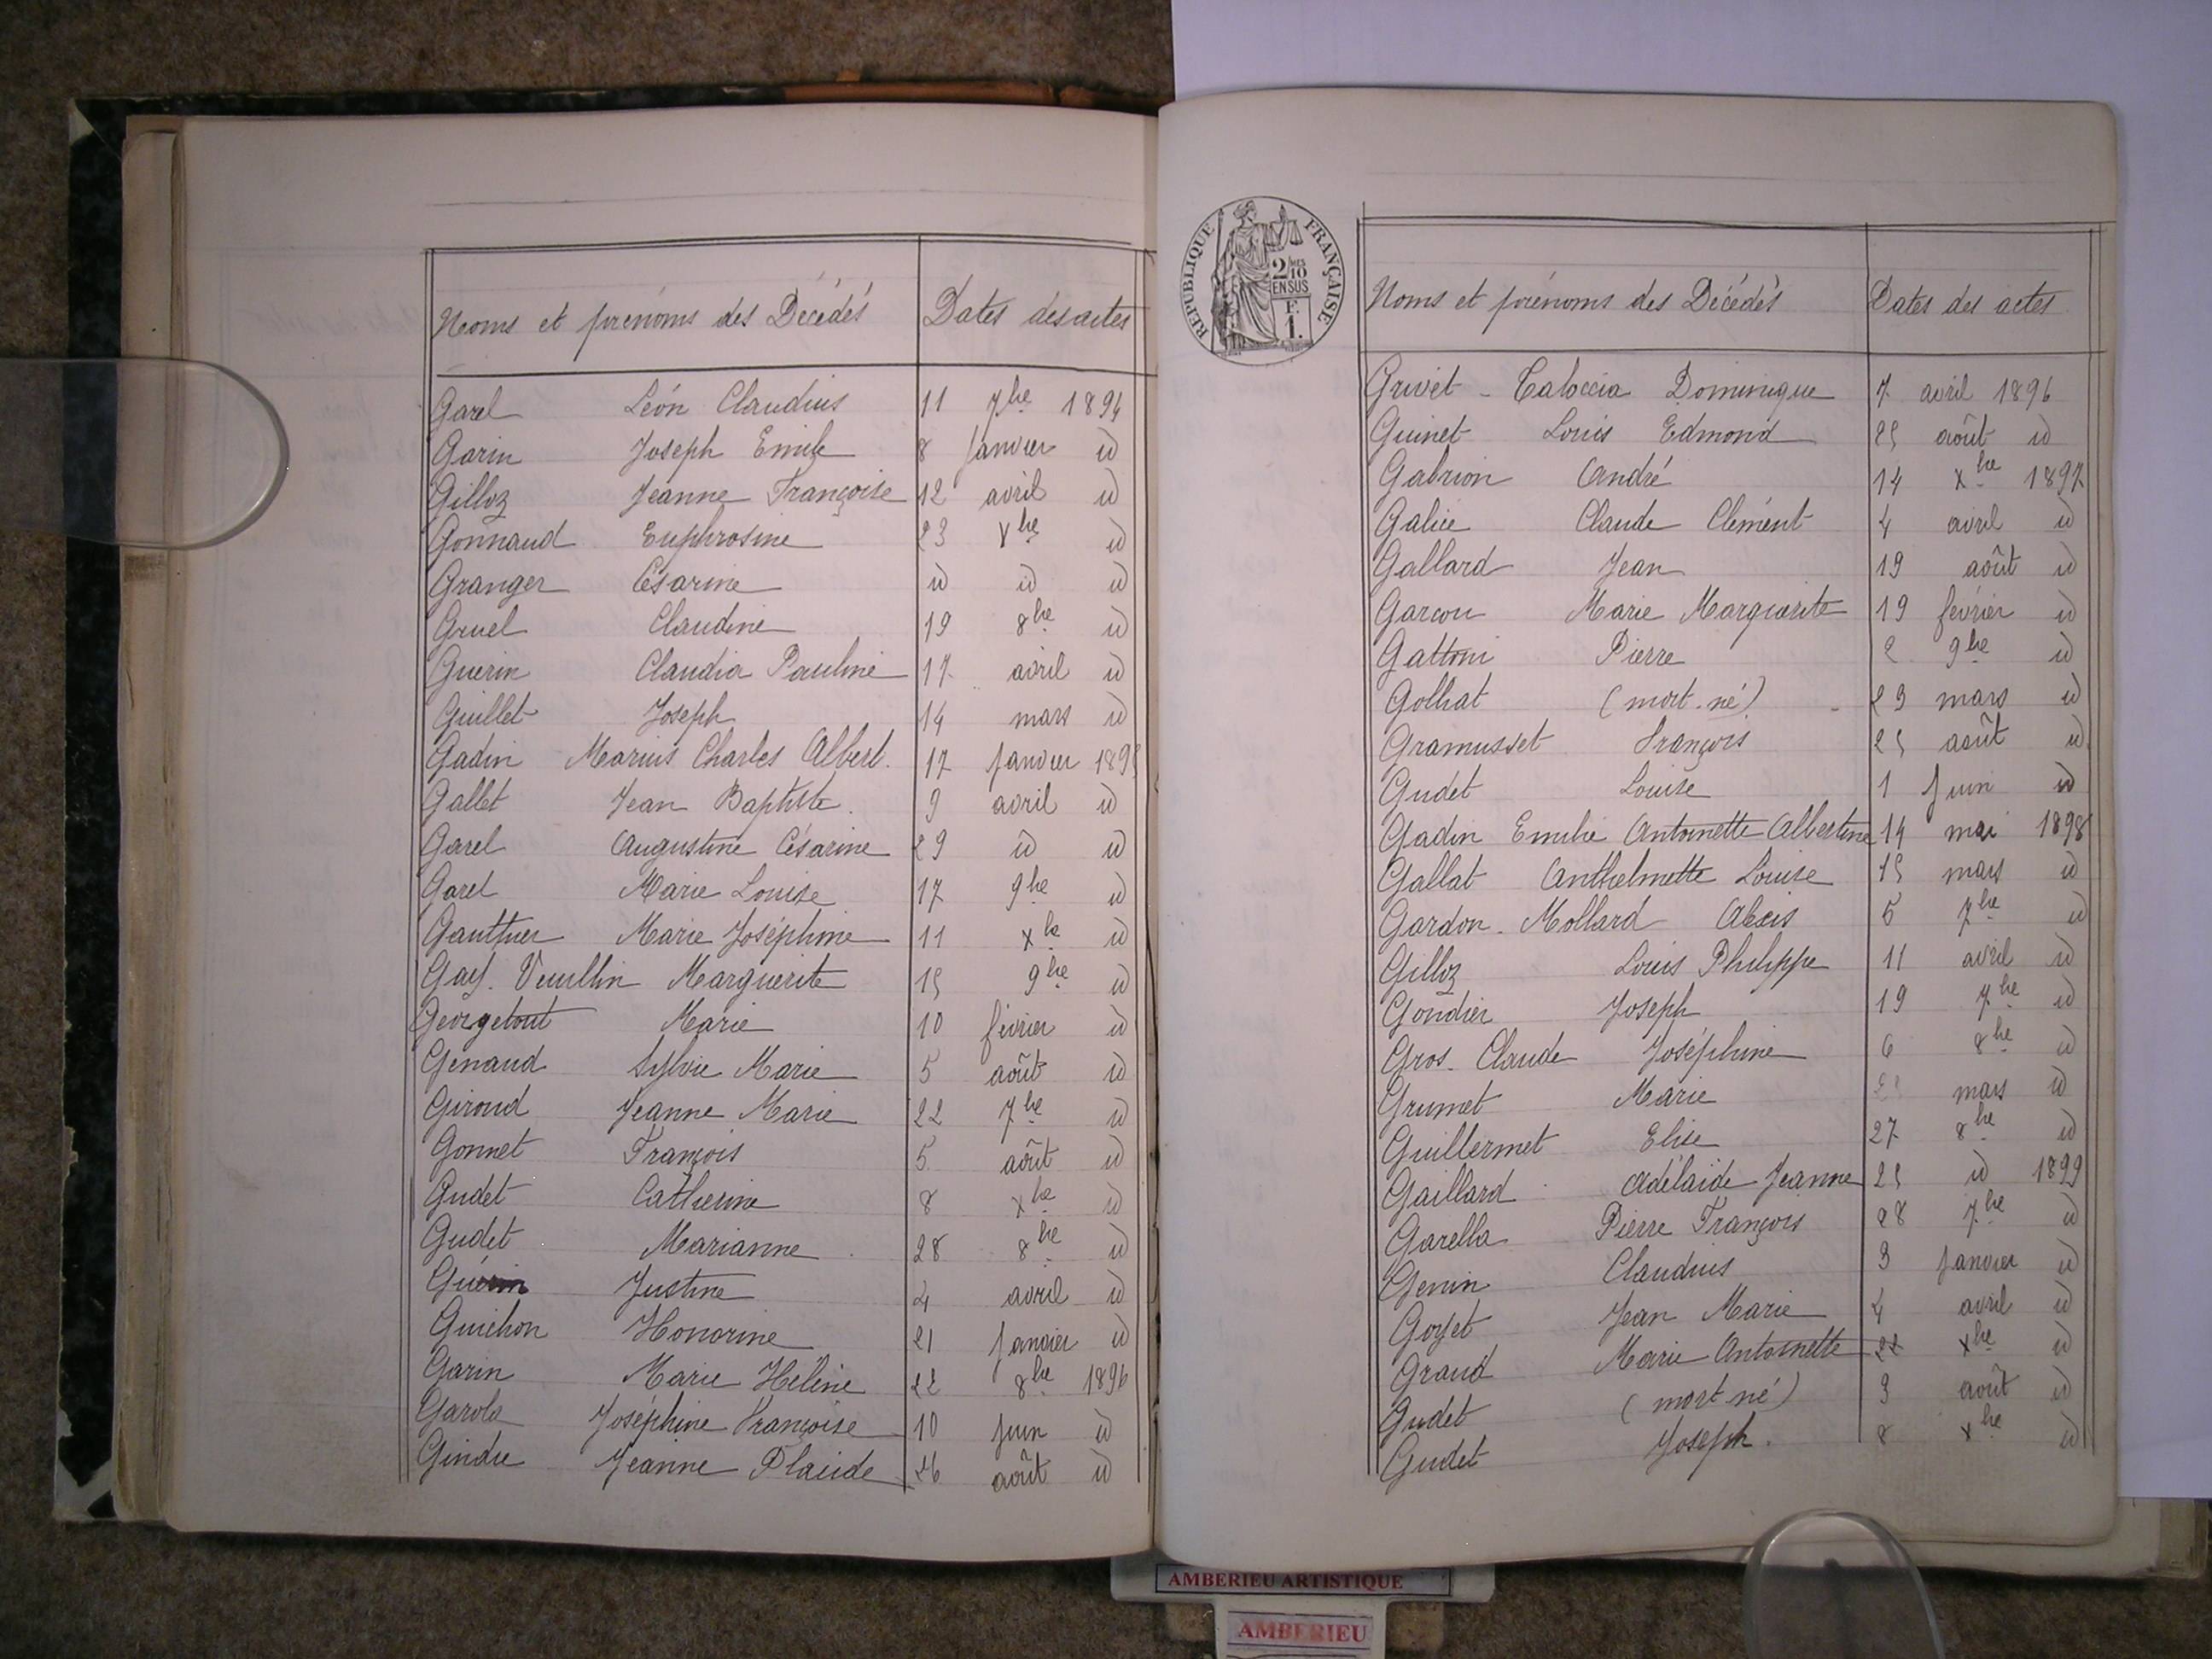 Noms et prénoms des Décédés Dates des actes
Garel Léon Claudius 11 7bre 1894
Garin Joseph Emile 8 Janvier id
Gilloz Jeanne Françoise 12 avril id
Gonnaud Euphrosine 23 Xbre id
Granger Césarine id id id
Gruel Claudine 19 8bre id
Guerin Claudia Pauline 17 avril id
Guillet Joseph 14 mars id
Gadin Marius Charles Albert. 17 Janvier 1895
Gallet Jean Baptiste. 9 avril id
Garel Augustine Césarine 29 id id
Garel Marie Louise 17 9bre id
Gauthier Marie Joséphine 11 Xbre id
Gay. Vuillin Marguerite 15 9bre id
Georgetout Marie 10 février id
Génaud Sylvie Marie 5 août id
Giroud Jeanne Marie 22 7bre id
Gonnet François 5 août id
Gudet Catherine 8 Xbre id
Gudet Marianne 28 8bre id
Guérin Justine 4 avril id
Guichon Honorine 21 Janvier id
Garin Marie Hélène 22 8bre 1896
Garola Joséphine Françoise 10 Juin id
Gindre Jeanne Placide 26 août id
REPUBLIQUE FRANÇAISE
2/10MES
EN SUS
F.
1.
Noms et prénoms des Décédés Dates des actes
Grivet - Caloccia Dominique 7 avril 1896
Guinet Louis Edmond 25 août id
Gabrion André 14 Xbre 1897
Galice Claude Clément 4 avril id
Gallard Jean 19 août id
Garcon Marie Marguerite 19 février id
Gattoni Pierre 2 9bre id
Golhat (mort-né) 29 mars id
Gramusset François 25 août id
Gudet Louise 1 Juin id
Gadin Emilie Antoinette Albertine 14 mai 1898
Gallat Anthelmette Louise 15 mars id
Gardon. Mollard Alexis 5 7bre id
Gilloz Louis Philippe 11 avril id
Gondier Joseph 19 7bre id
Gros. Claude Joséphine 6 8bre id
Grumet Marie mars id
Guillermet Elise 27 8bre id
Gaillard Adélaïde Jeanne 25 id 1899
Garella Pierre François 28 7bre id
Genin Claudius 3 Janvier id
Goyet Jean Marie 4 avril id
Grand Marie Antoinette 22 Xbre id
Gudet (mort né) 3 août id
Gudet Joseph. 8 Xbre id
AMBERIEU ARTISTIQUE
AMBERIEU